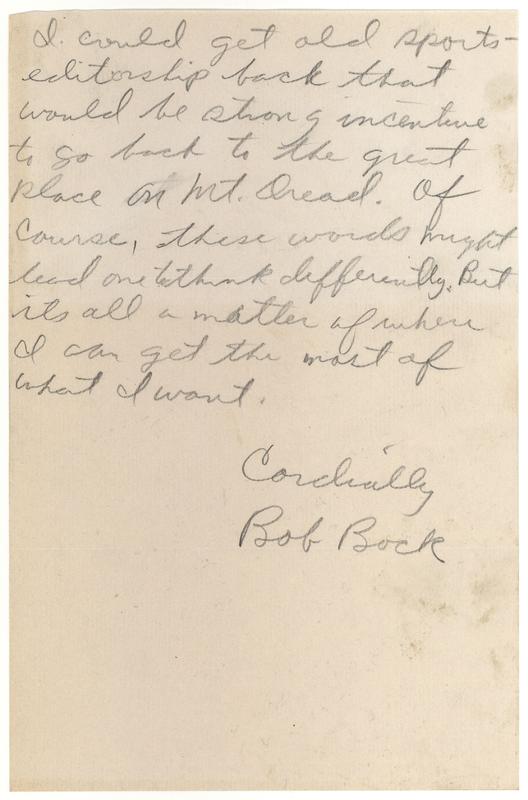 I could get old sports-
editorship back that
would be strong incentive
to go back to the great
place on Mt. Dread. Of
course, these words might
lead one to think differently. But
its all a matter of where
I can get the most of
what I want.
Cordially
Bob Bock